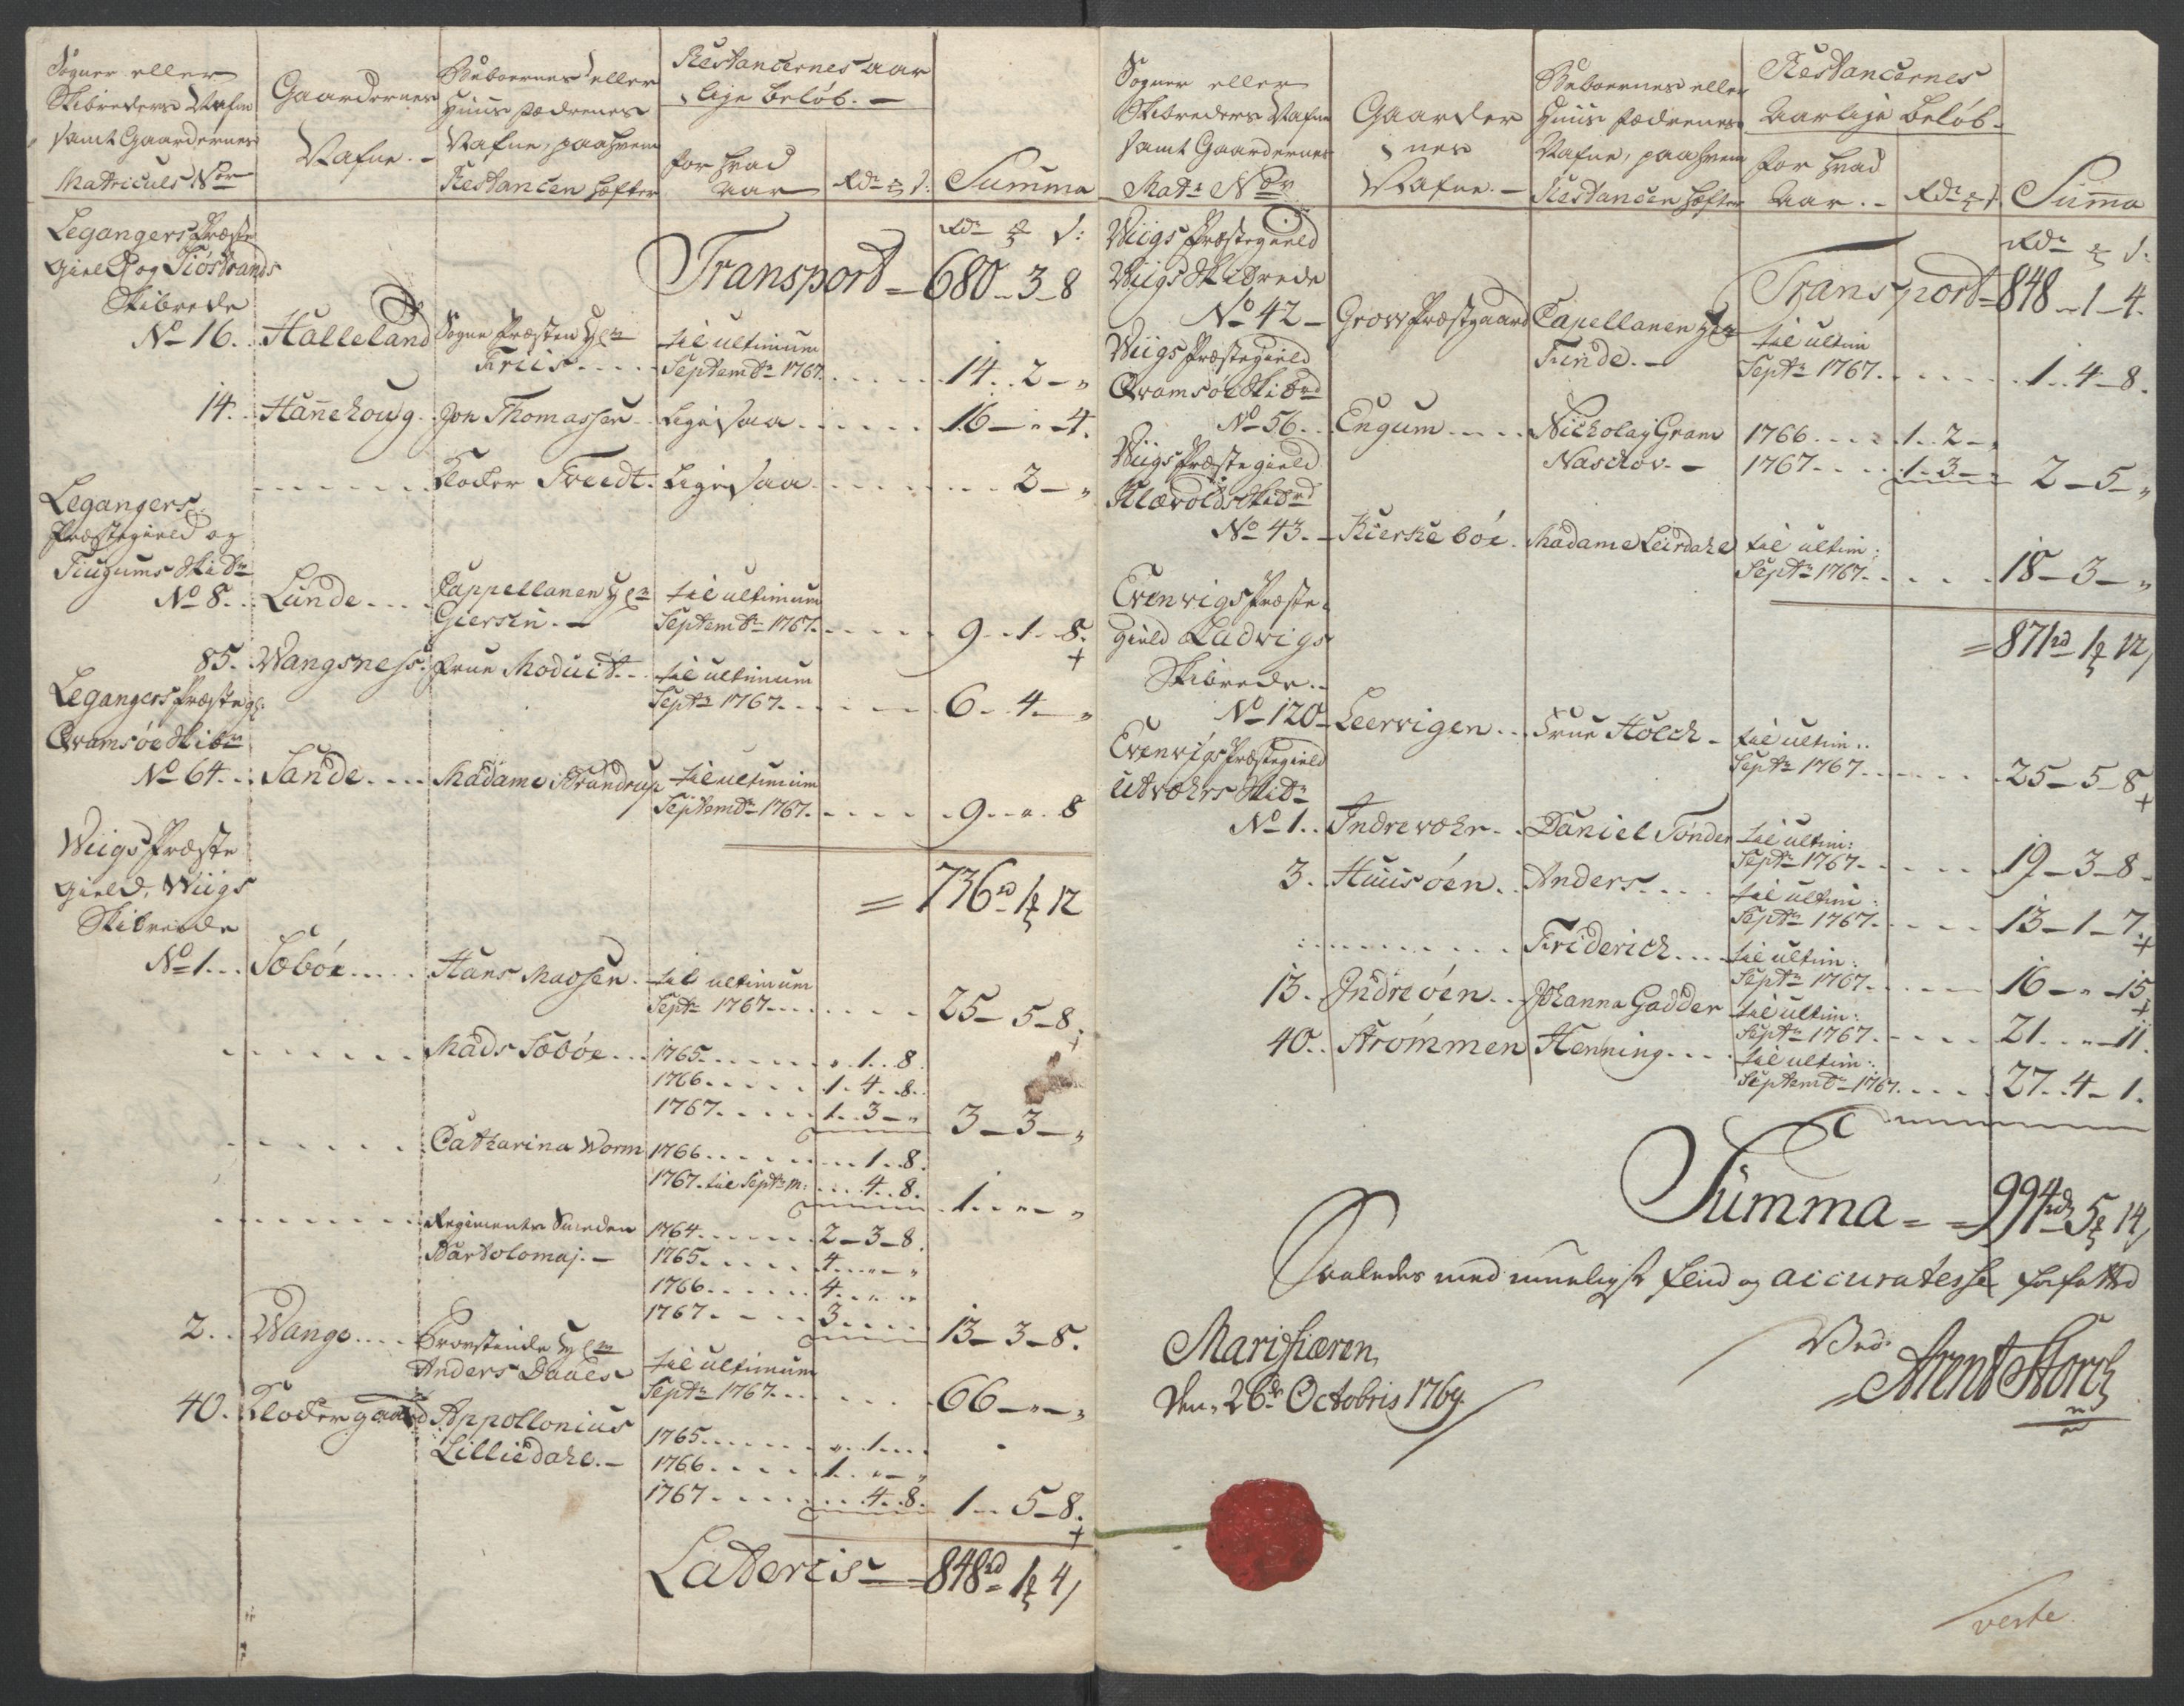 Sogner eller
Skibreders Nafne
samt Gaardernes
Matriculs Nor
Gaardernes
Nafne. -
Beboernes eller
Huus Fædrenes
Nafne, paa hvem
Restancen hæfter
Restancernes aar
lige beløb. -
for hvad
Aar
Rdr ß:
Summa
Legangers Præste
Gield og Siøstrands
Skibrede
Rdr ß:
Transport = 680 - 3 - 8
No 16. Halleland Sogne Præsten Hr
Friis til ultimum
Septembr 1767. 14. 2 - "
14. Hannehoug. Jon Thomassen. Ligesaa 16 - " - 4.
Klocker Tredt. Ligesaa 2 - "
Legangers
Præstegield og
Tiugums Skibr
No 8. Lunde Cappellanen Hr
Giersin. - til ultimum
Septembr 1767. 9 - 1 - 8.
85. Wangsness. Frue Moduit. til ultimum
Septr 1767. 6 - 4 - "
Legangers Præsteg:
Qvamsøe Skibr
No 64. Sande Madame Strandrup til ultimum
Septembr 1767. 9 - " - 8
Wiigs Præste
Gield, Wiigs
Skibrede
= 736 rd 1 12
No 1. Sæbøe Hans Madsen. til ultimum
Septr 1767 25 - 5 - 8.
Mads Sæbøe 1765 " 1 8.
1766 1. 4. 8.
1767 1. 3 - " 3 - 3 - "
Catharina Worm 1766 1. 8.
1767. til Septr m: 4. 8. 1 - " - "
Regiments Smeden
Bartolomaj. -
1764 2 - 3 - 8.
1765 4 " "
1766 4 " "
1767 3 13 - 3 - 8.
2. Wange Provstinde Hr
Anders Daaes til ultimum
Septr 1767 66 - " - "
40. Klockergaard Appollonius
Lilliedahl. -
1765 " 1
1766 1. " - "
1767 4. 8. 1 - 5 - 8.
Lateris = 848 rd 1 4
Sogner eller
Skibreders Nafne
samt Gaardernes
Matr Nor
Gaarder
nes
Nafne. -
Beboernes eller
Huus Fædrenes
Nafne, paa hvem
Restancen hæfter
Restancernes
Aarlige beløb.
for hvad
Aar. -
Rdr ß
Summa
Wiigs Præstegield
Wiigs Skibrede
Rdr ß:
Transport = 848 - 1 - 4.
No 42 - Grow Præstgaard Capellanen Hr
Finde. - til ultim
Septr 1767. 1. 4 - 8.
Wiigs Præstegield
Qvamsøe Skibrd
No 56. Engum Nicholay Gram
Naschov. -
1766 1. 2 -
1767 1. 3 - 2 - 5 - "
Wiigs Præstegield
Klævolds Skibrd
No 43. - Kierkebøe. Madame Leirdahl til ultim:
Septr 1767. 18 - 3 - "
= 871 rd 1 12
Evenvigs Præste
Gield Ladvigs
Skibrede. -
No 120 - Leervigen. Frue Holch - til ultim:
Septr 1767. 25 - 5 - 8
Evenvigs Præstegield
Utvæhrs Skibr
No 1. Indrevæhr. Daniel Tønder til ultim:
Septr 1767. 19 - 3 - 8.
3. Huusøen. Anders til ultim:
Septr 1767. 13 - 1 - 7.
Friderich til ultim:
Septr 1767. 16 - " - 15
13. Indreøen. Johanna Gadder til ultim:
Septr 1767. 21. " - 11.
40. Strømmen Henning til ultim:
Septembr 1767. 27. 4 - 1.
Summa = = 994 rd 5 14
Saaledes med mueligst Fliid og accuratesse forfatted
Marifiæren,
den 26de Octobris 1769.
Ved
Arent Storch
verte